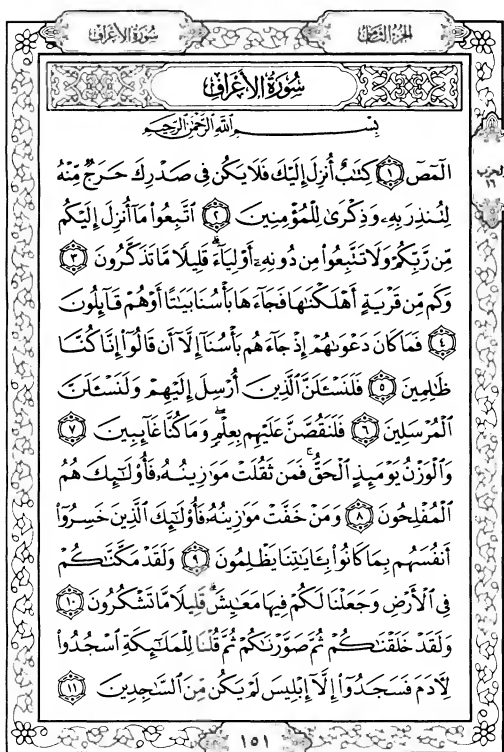 سُورَةُ الأَعْرَافِ الجُزْءُ الثَّامِنُ
سُورَةُ الأَعْرَافِ
بِسْمِ اللَّهِ الرَّحْمَٰنِ الرَّحِيمِ
الحزب ١٦
الٓمٓصٓ ١ كِتَٰبٌ أُنزِلَ إِلَيْكَ فَلَا يَكُن فِى صَدْرِكَ حَرَجٌ مِّنْهُ
لِتُنذِرَ بِهِۦ وَذِكْرَىٰ لِلْمُؤْمِنِينَ ٢ ٱتَّبِعُوا۟ مَآ أُنزِلَ إِلَيْكُم
مِّن رَّبِّكُمْ وَلَا تَتَّبِعُوا۟ مِن دُونِهِۦٓ أَوْلِيَآءَ ۗ قَلِيلًا مَّا تَذَكَّرُونَ ٣
وَكَم مِّن قَرْيَةٍ أَهْلَكْنَٰهَا فَجَآءَهَا بَأْسُنَا بَيَٰتًا أَوْ هُمْ قَآئِلُونَ
٤ فَمَا كَانَ دَعْوَىٰهُمْ إِذْ جَآءَهُم بَأْسُنَآ إِلَّآ أَن قَالُوٓا۟ إِنَّا كُنَّا
ظَٰلِمِينَ ٥ فَلَنَسْـَٔلَنَّ ٱلَّذِينَ أُرْسِلَ إِلَيْهِمْ وَلَنَسْـَٔلَنَّ
ٱلْمُرْسَلِينَ ٦ فَلَنَقُصَّنَّ عَلَيْهِم بِعِلْمٍ ۖ وَمَا كُنَّا غَآئِبِينَ ٧
وَٱلْوَزْنُ يَوْمَئِذٍ ٱلْحَقُّ ۚ فَمَن ثَقُلَتْ مَوَٰزِينُهُۥ فَأُو۟لَٰٓئِكَ هُمُ
ٱلْمُفْلِحُونَ ٨ وَمَنْ خَفَّتْ مَوَٰزِينُهُۥ فَأُو۟لَٰٓئِكَ ٱلَّذِينَ خَسِرُوٓا۟
أَنفُسَهُم بِمَا كَانُوا۟ بِـَٔايَٰتِنَا يَظْلِمُونَ ٩ وَلَقَدْ مَكَّنَّٰكُمْ
فِى ٱلْأَرْضِ وَجَعَلْنَا لَكُمْ فِيهَا مَعَٰيِشَ ۗ قَلِيلًا مَّا تَشْكُرُونَ ١٠
وَلَقَدْ خَلَقْنَٰكُمْ ثُمَّ صَوَّرْنَٰكُمْ ثُمَّ قُلْنَا لِلْمَلَٰٓئِكَةِ ٱسْجُدُوا۟
لِـَٔادَمَ فَسَجَدُوٓا۟ إِلَّآ إِبْلِيسَ لَمْ يَكُن مِّنَ ٱلسَّٰجِدِينَ ١١
١٥١